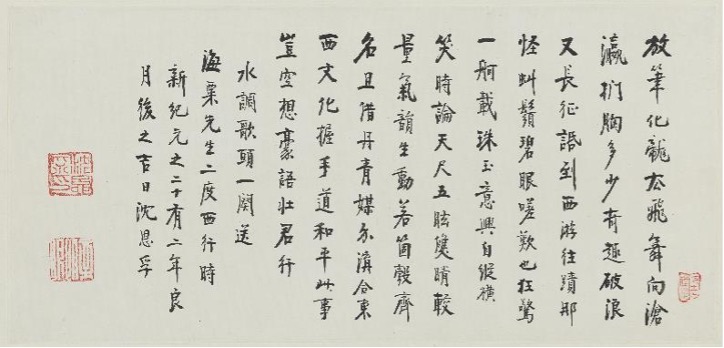 放筆化龍去飛舞向滄
瀛捫胸多少奇趣破浪
又長征話到西游往蹟那
怪虯鬚碧眼嗟歎也狂驚
一舸載珠玉意興自縱橫
笑時論天尺五眩雙睛較
量氣韻生動若箇轂齊
名且借丹青媒介漢合東
西文化握手道和平此事
豈空想豪語壯君行
水調歌頭一闋送
海粟先生二度西行時
新紀元之二十有二年良
月後之吉日沈恩孚